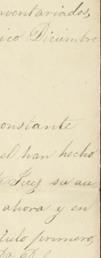 nventariados,
ico Diciembre
onstante
el han hecho
su au
ahora y en
primero,